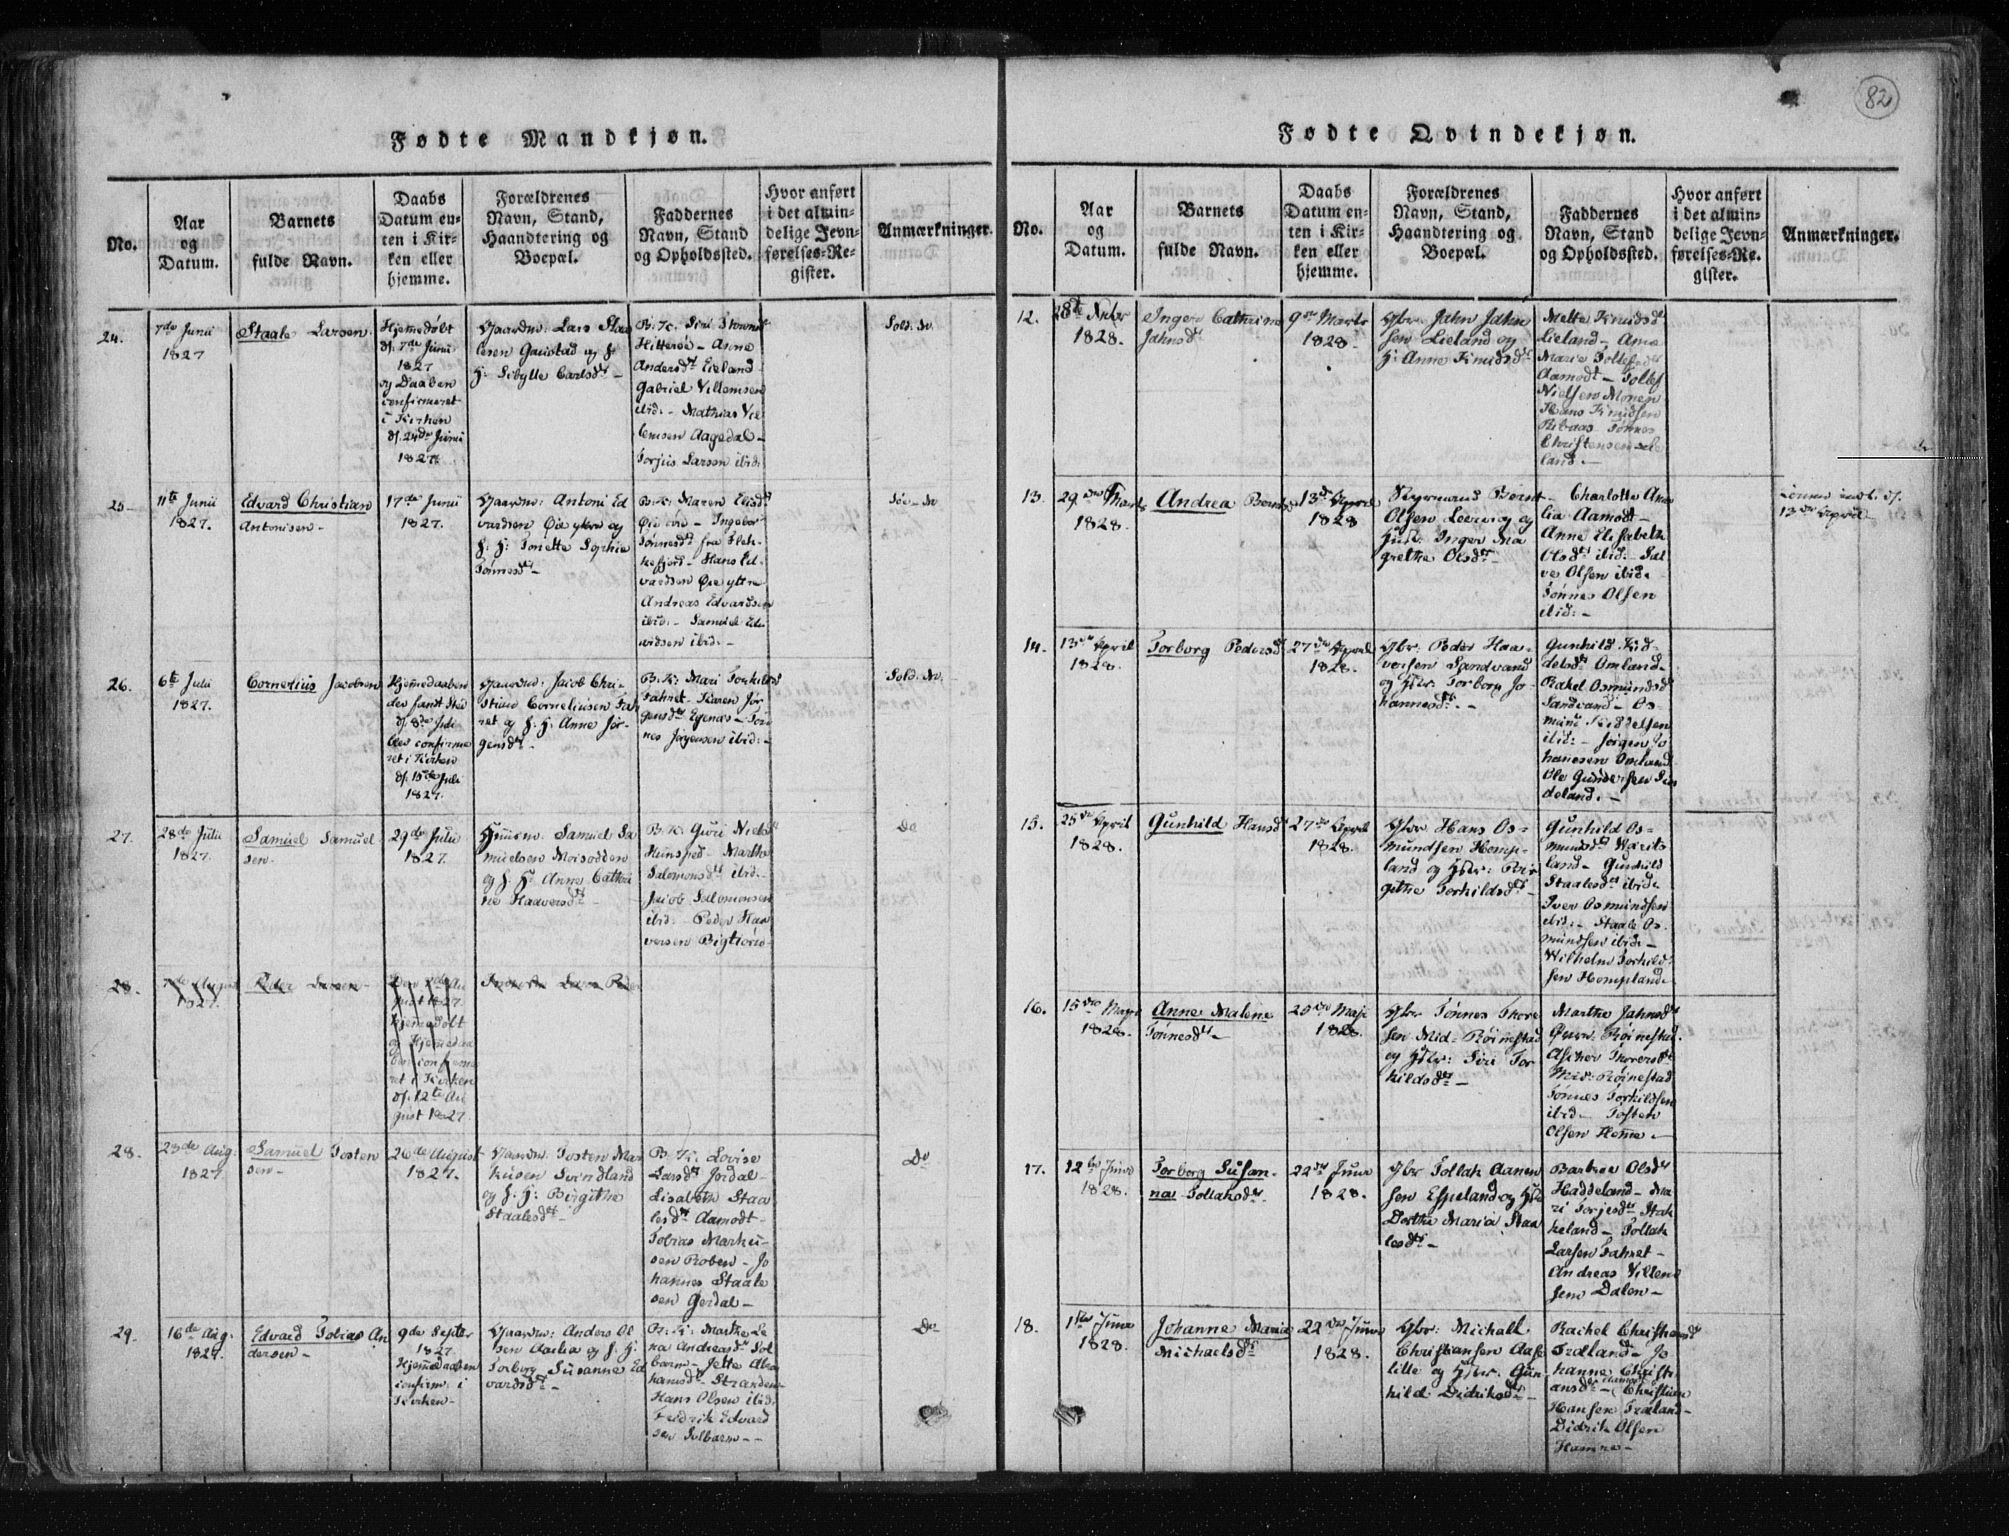 82
Fødte Mandkjøn.
No.
Aar
og
Datum.
Barnets
fulde Navn.
Daabs
Datum en-
ten i Kir-
ken eller
hjemme.
Forældrenes
Navn, Stand,
Haandtering og
Boepæl.
Faddernes
Navn, Stand
og Opholdssted.
Hvor anført
i det almin-
delige Jevn-
førelses-Re-
gister.
Anmærkninger.
24.
7de Junii
1827
Staale Larsen
Hjemedøbt
d. 7de Junii
1827
og Daaben
confirmeret
i Kirken
d. 24de Junii
1827.
Gaardm: Lars Staa
lesen Gaustad og
H: Sibylle Carlsdt
B: K: Siri
Hitterøe - Anne
Andersdt Eieland
Gabriel Villemsen
ibid: - Mathias Vil
lemsen Aagedal -
Torjus Larsen ibid:
25
11te Junii
1827.
Edvard Christian
Antonisen -
17de Junii
1827.
Gaardm: Antoni Ed
vardsen Øie ytre og
H: Tonette Sophia
Tønnesdt -
B: K: Maren Elisdt
Øie - Ingebor
Tønnesdt fra Flek-
kefjord - Hans Ed-
vardsen Øie ytre
Andreas Edvardsen
ibid: - Samuel Ed-
vardsen ibid. -
26.
6te Julii
1827.
Cornelius Jacobsen
Hjemedaaben
d. 8de Juli
confirme
ret i Kirken
d. 15de Juli
1827.
Gaardm: Jacob Chri-
stian Corneliusen
og H: Anne Jør-
gensdt.
B: K: Mari Torkildsdt
Karen Jør
gensdt Egenæs - Tøn
nes Jørgensen ibid: -
27.
28de Julii
1827.
Samuel Samuel
sen.
29de Julii
1827.
Samuel Sa
muelsen Moisodden
og H: Anne Cathri
ne Haaversdt -
B: K: Guri Nielsdt
Hunsped - Marthe
Salomonsdt ibid. -
Jacob Salomonsen
ibid: Peder Haa
versen
28.
7de August
1827.
Peder Larsen -
1827
Hjemedøbt
og Hjemedaa
ben confirme
ret i Kirken
d. 12te Au
gust 1827.
28.
23de Aug:
1827.
Samuel Tosten
sen -
26de August
1827.
Gaardm: Tosten Mar
kusen Svindland
og H: Birgithe
Staalesdt -
B: K: Lovise
Larsdt Jerdal -
Lisabeth Staa
lesdt Aamodt -
Tobias Marku-
sen Roben - Jo
hannes Staale
sen Gerdal -
Do
29.
16de Aug.
1827.
Edvard Tobias An
dersen -
9de Septbr
1827
Hjemedaaben
confirm: i
Kirken -
Gaardm: Anders Ol
sen Aaelia og H:
Torborg Susanne Ed
vardsdt -
B: K: Marthe Le
na Andreasdt Sol
barm - Jette Abra
hamsdt - Stranden -
Hans Olsen ibid:
Fredrik Edvard
sen Solbarm - -
Do
Fødte Qvindekjøn.
No.
Aar
og
Datum.
Barnets
fulde Navn.
Daabs
Datum en-
ten i Kir-
ken eller
hjemme.
Forældrenes
Navn, Stand,
Haandtering og
Boepæl.
Faddernes
Navn, Stand
og Opholdssted.
Hvor anført
i det almin-
delige Jevn-
førelses-Re-
gister.
Anmærkninger.
12.
1828.
Inger Cathrine
Jahnsdt
9de Marts
1828.
Gbr. Jahn Jahn
sen Lieland og
H: Anne Knudsdt
Mette Knudsdt
Lieland -
Marie Tollefsdt
Aamodt - Tollef
Nielsen Monen
Hans Knudsen
Ribaas Tønnes
Christensen
land. -
13.
29de Marts
1828.
Andrea Berntsdt
13de April
1828
Bernt
Olsen Leervig og
Hust: Inger Ma
grethe Olsdt -
Charlotte Ama
lia Aamodt -
Anne Elisabeth
Olsdt ibid: Sal
ve Olsen ibid:
Tønnes Olsen
ibid: -
13de April
14.
13de April
1828.
Torborg Pedersdt
27de April
1828.
Gbr. Peder Haa-
versen Sandvand
og Hstr: Torborg Jo
hannesdt. -
Gunhild Kid-
delsdt Omland -
Rakel Osmundsdt
Sandvand - Os-
mund Kiddelsen
ibid: - Jørgen Jo
hannesen Omland
Ole Gundersen
deland. -
15.
25de April
1828.
Gunhild Hansdt
27de April
1828.
Gbr Hans Os-
mundsen Homp-
land og Hstr: Bir
githe Torkildsdt -
Gunhild Os-
mundsdt
land - Gunhild
Staalesdt ibid:
Iver Osmundsen
ibid: - Staale Os-
mundsen ibid: -
Wilhelm Torkild-
sen Hompland.
16.
15de Maji
1828.
Anne Malene
Tønnesdt -
1828.
Gbr Tønnes Thore
sen Mid-Røinestad
og Hstr: Siri Tor
kildsdt -
Marthe Jahnsdt
Øvre Røinestad.
Thoresdt
Mid: Røinestad
Tønnes Torkildsen
ibid - Tosten
Olsen Heme. -
17.
12te Junii
1828.
Torborg Susan-
na Tollaksdt
22de Junii
1828.
Gbr Tollak Aanen
sen Espeland og
Dorthe Maria Staa
lesdt -
Barbroe Olsdt
Haddeland - Ma
ri Torjesdt Stak
keland - Tollak
Larsen
Andreas Villem
sen Dalen -
18.
1ste Junii
1828.
Johanne Maria
Michaelsdt
22de Junii
1828.
Gbr: Michall
Christiansen Aase
lille og Hstr. Gun
hild: Didriksdt -
Rachel Christiansdt
Trælland - Jo
hanne Christi-
ansdt - Christian
Hansen Træland -
Didrik Olsen
Hamre -